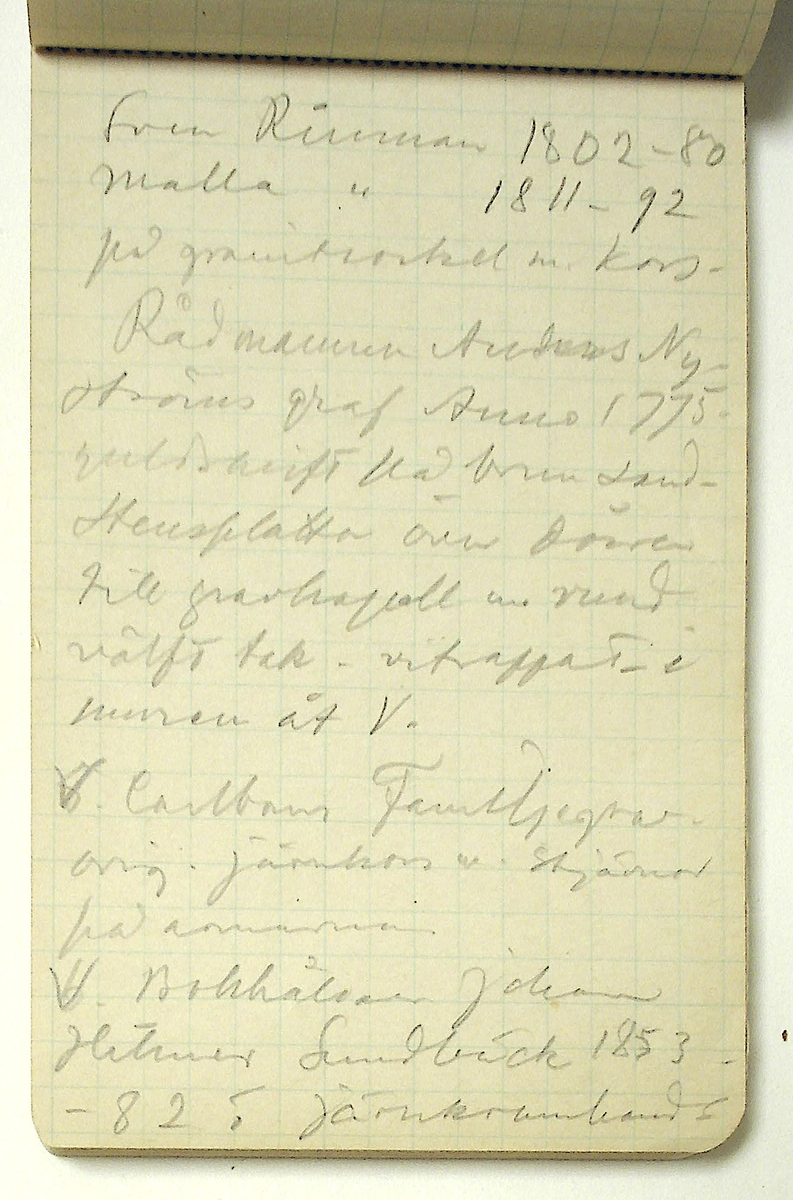 Sven Rinman 1802-80
Malla " 1811-92
på granitsockel m. kors-
Rådmannen Anders Ny-
ströms graf Anno 1775-
guldskrift på brun sand-
stensplatta över dörren
till gravkapell m. rund
välft tak - vitrappat - i
muren åt V.
Carlboms Familjegrav-
orig. järnkors m. stjärnor
på armarna.
Bokhållaren Johan
Sundbäck 1853-
-82 järnkors